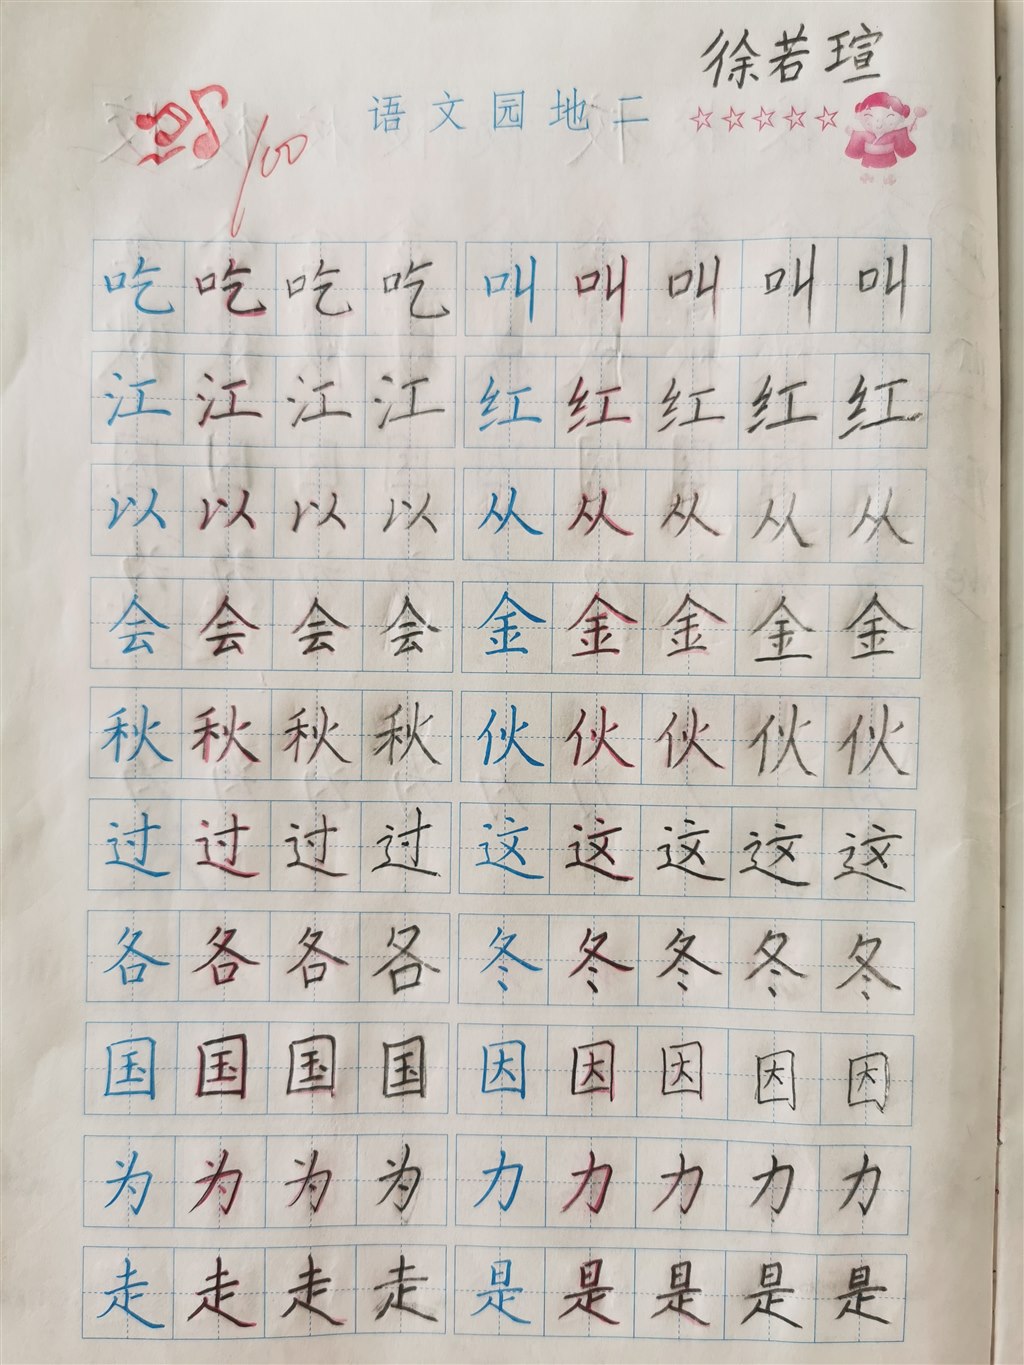 徐若瑄
语文园地二
100
吃吃吃吃 叫叫叫叫叫
江江江江 红红红红红
以以以以 从从从从从
会会会会 金金金金金
秋秋秋秋 伙伙伙伙伙
过过过过 这这这这这
各各各各 冬冬冬冬冬
国国国国 因因因因因
为为为为 力力力力力
走走走走 是是是是是